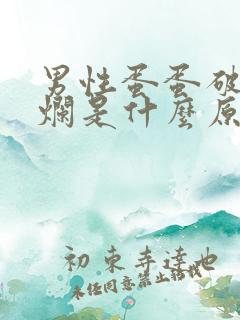 男性蛋蛋破
爛是什麼原
初束奔達也
未任同意禁止轉載